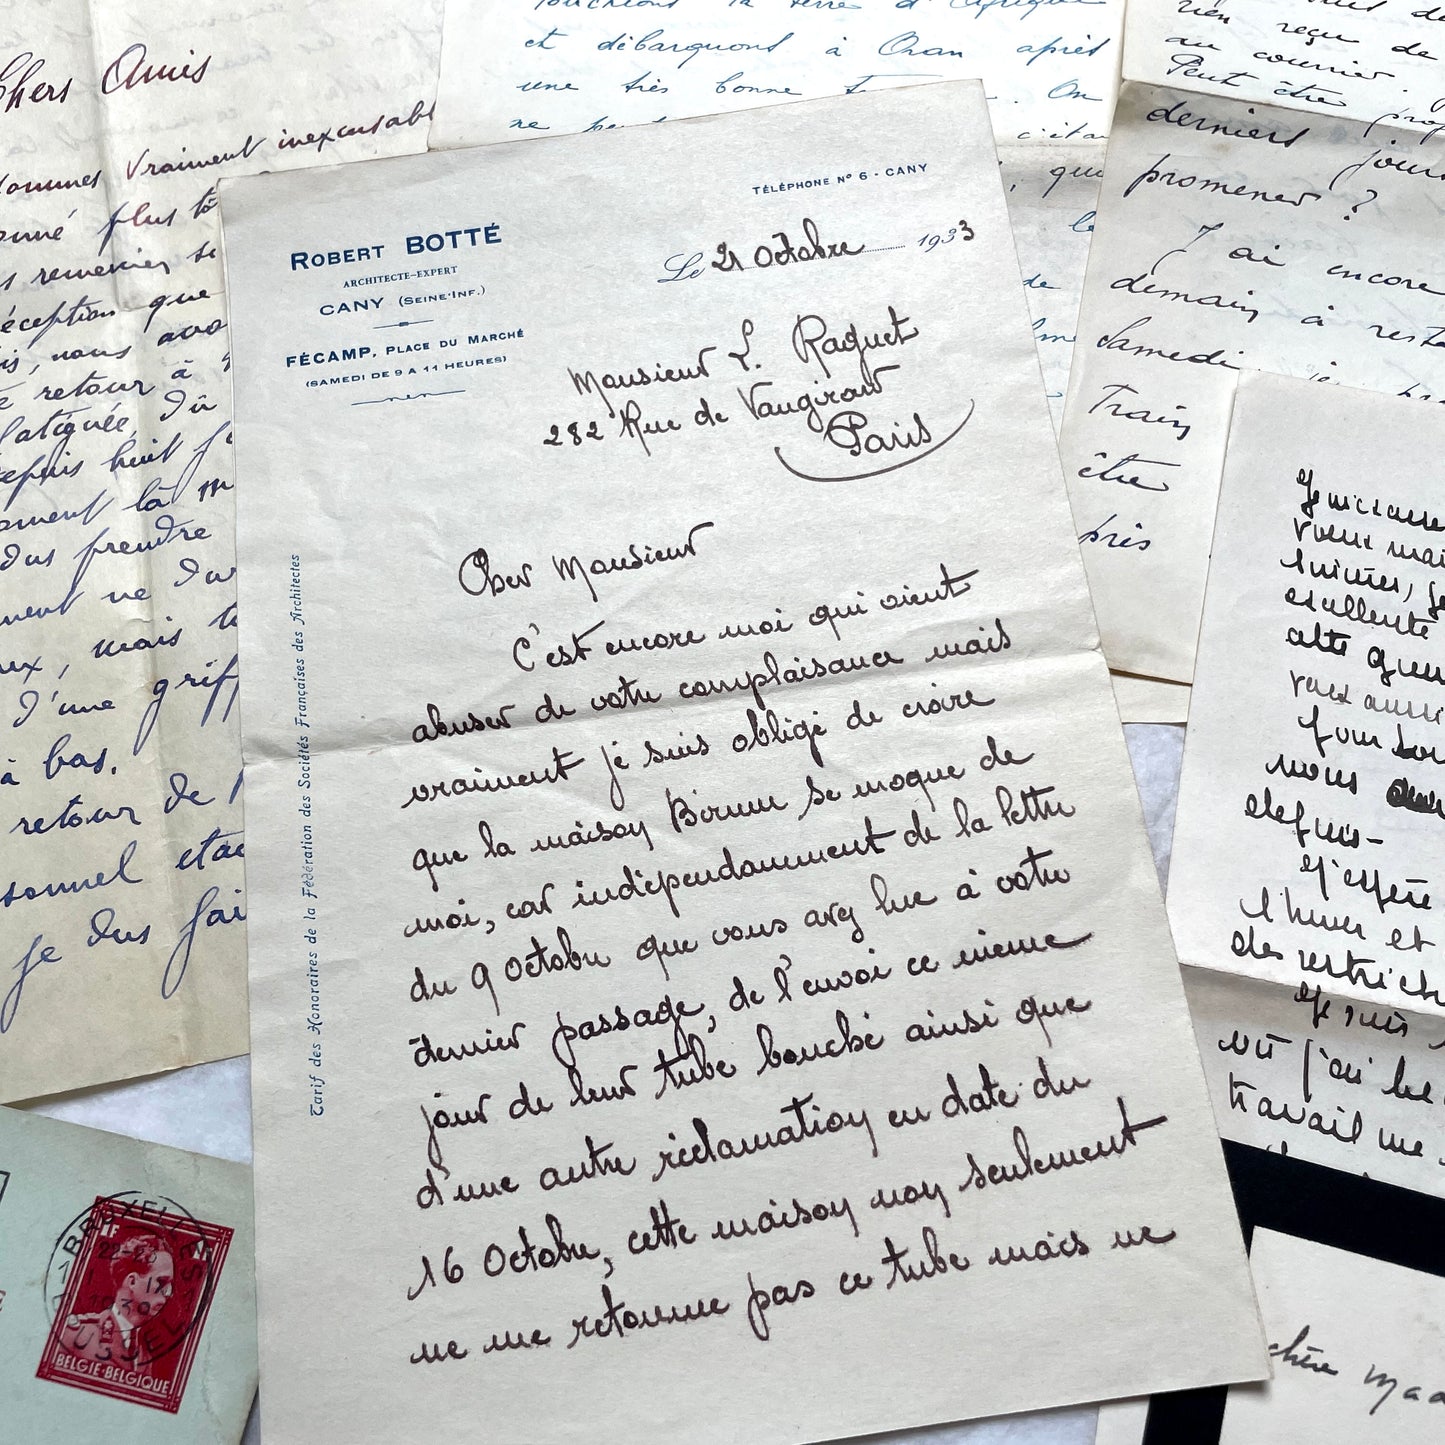 TÉLÉPHONE Nº 6 - CANY
ROBERT BOTTÉ
ARCHITECTE-EXPERT
CANY (SEINE-INF.)
FÉCAMP, PLACE DU MARCHÉ
(SAMEDI DE 9 A 11 HEURES)
Le 21 Octobre 1933
Monsieur L. Raguet
282 Rue de Vaugirard
Paris
Cher Monsieur
C'est encore moi qui vient
abuser de votre complaisance mais
vraiment je suis obligé de croire
que la maison se moque de
moi, car indépendamment de la lettre
du 9 Octobre que vous avez lue à votre
dernier passage, de l'envoi ce même
jour de leur tube bouché ainsi que
d'une autre réclamation en date du
16 Octobre, cette maison non seulement
ne me retourne pas ce tube mais ne
Tarif des Honoraires de la Fédération des Sociétés Françaises des Architectes
Chers Amis
sommes vraiment inexcusabl
plus tô
s remercier
éception que
is, nous avo
retour à
fatiguée, dû
depuis huit
là
dus prendre
ment ne
ux, mais
d'une grif
à bas.
retour de
sonnel
je dus fai
la terre d'Afrique
et débarquons à Oran après
une très bonne
On
ne
c'éta
, qu
le
de
rien reçu de
au courrier.
Peut être
derniers jour
promener ?
J'ai encore
demain à rest
Samedi
Train
être
près
vous mai
excellente
vous aussi
nous
depuis-
J'espère
l'hiver et
des restrict
Je suis
vu j'ai
travail me
chère Mad
BRUXELLES
BRUSSEL
1F
22-23
IX
1939
BELGIE-BELGIQUE